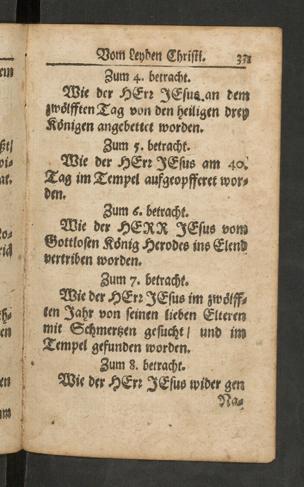 Vom Leyden Christi. 371
Zum 4. betracht.
Wie der HErr JEsus an dem
zwölfften Tag von den heiligen drey
Königen angebettet worden.
Zum 5. betracht.
Wie der HErr JEsus am 40.
Tag im Tempel aufgeopfferet wor-
den.
Zum 6. betracht.
Wie der HERR JEsus vom
Gottlosen König Herodes ins Elend
vertriben worden.
Zum 7. betracht.
Wie der HErr JEsus im zwölff-
ten Jahr von seinen lieben Elteren
mit Schmertzen gesucht / und im
Tempel gefunden worden.
Zum 8. betracht.
Wie der HErr JEsus wider gen
Na-